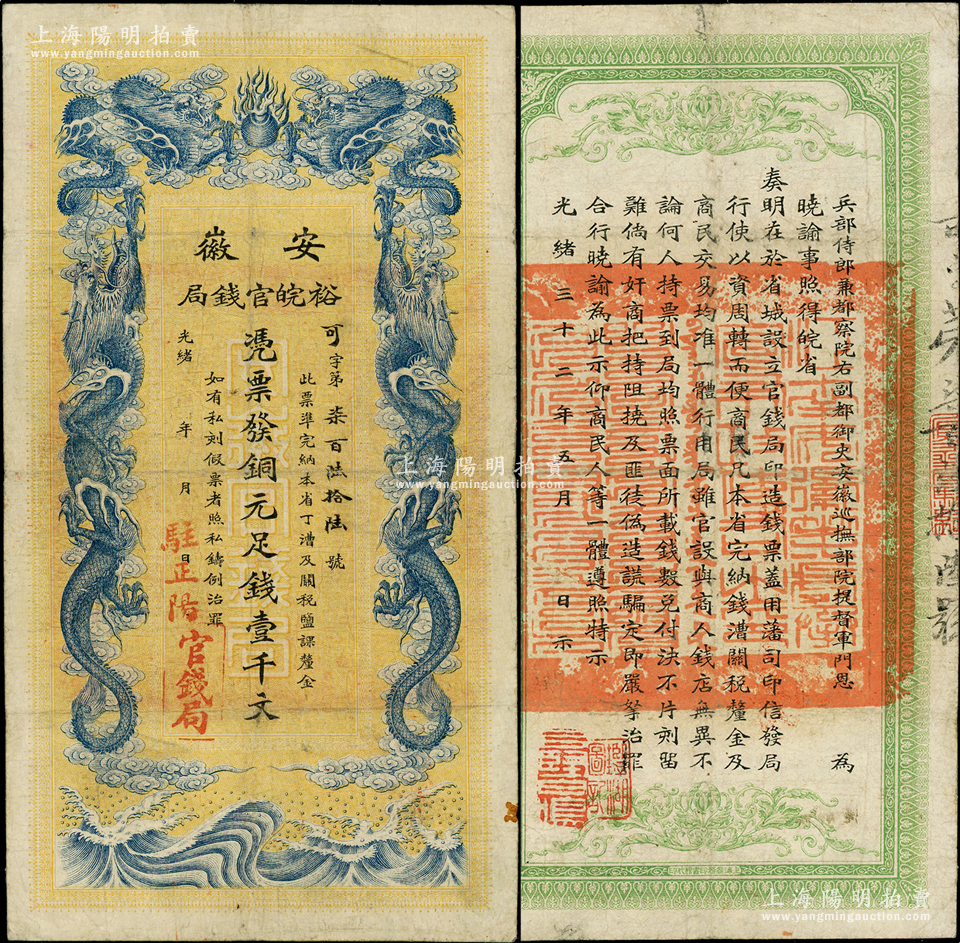 上海陽明拍賣
www.yangmingauction.com
安徽
裕皖官錢局
可字第柒百陸拾陸號
此票準完納本省丁漕及關稅鹽課釐金
憑票發銅元足錢壹千文
如有私刻假票者照私鑄例治罪
光緒 年 月 日
駐正陽官錢局
兵部侍郎兼都察院右副都御史安徽巡撫部院提督軍門恩 為
曉諭事照得皖省
奏明在於省城設立官錢局印造錢票蓋用藩司印信發局
行使以資周轉而便商民凡本省完納錢漕關稅釐金及
商民交易均准一體行用局雖官設與商人錢店無異不
論何人持票到局均照票面所載錢數兌付決不片刻留
難倘有奸商把持阻撓及匪徒偽造謊騙定即嚴拏治罪
合行曉諭為此示仰商民人等一體遵照特示
光緒三十二年五月 日示
上海陽明拍賣
www.yangmingauction.com
上海陽明拍賣
www.yangmingauction.com